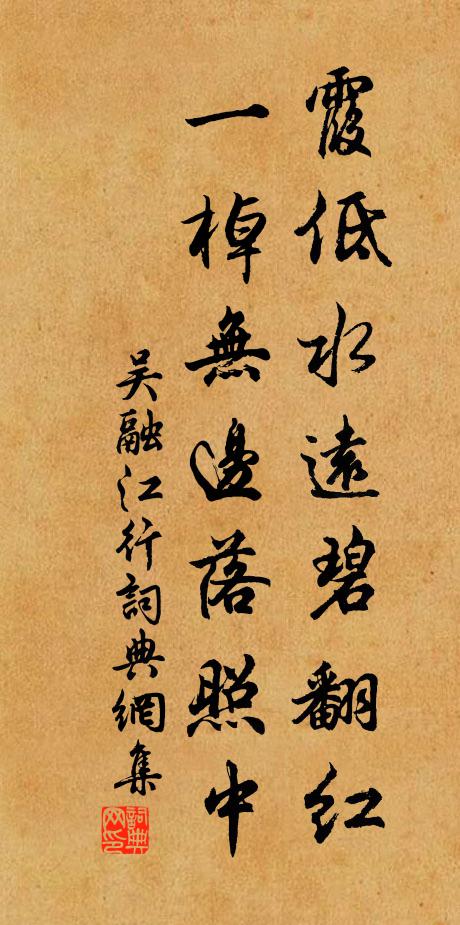 霞低水遠碧翻紅
一棹無邊落照中
吳融江行詞典網集
詞典网印